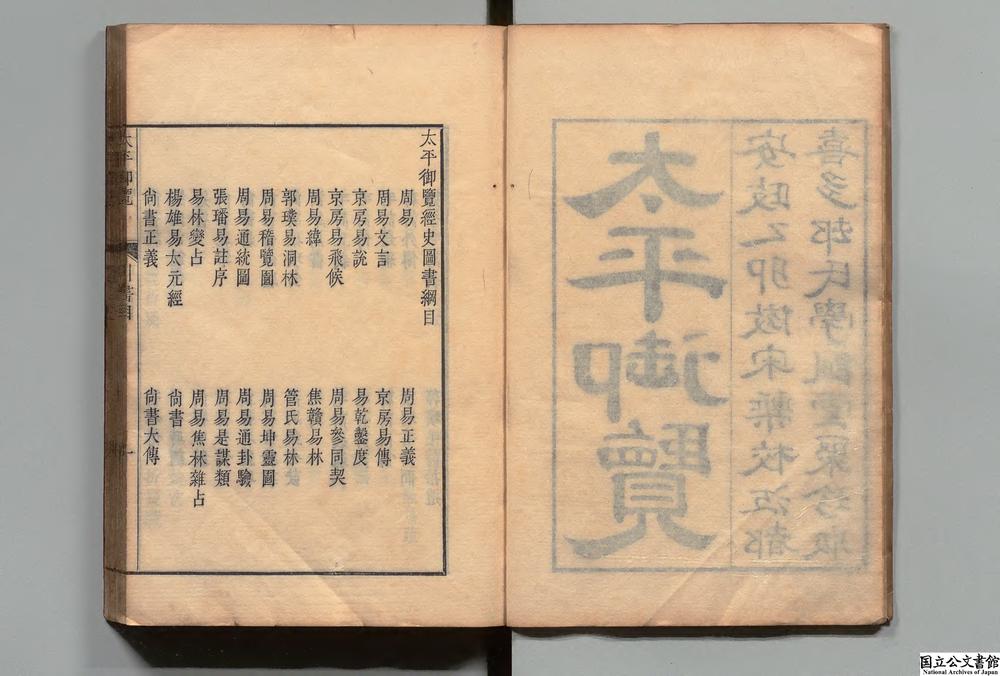 太平御覽
安政乙卯倣宋槧校江都
喜多邨氏學訓堂聚珍版
太平御覽經史圖書綱目
周易 周易正義
周易文言 京房易傳
京房易說 易乾鑿度
京房易飛候 周易參同契
周易緯 焦贛易林
郭璞易洞林 管氏易林
周易稽覽圖 周易坤靈圖
周易通統圖 周易通卦驗
張璠易註序 周易是謀類
易林變占 周易焦林雜占
楊雄易太元經 尙書
尙書正義 尙書大傳
太平御覽 書目 一
国立公文書館
National Archives of Japan